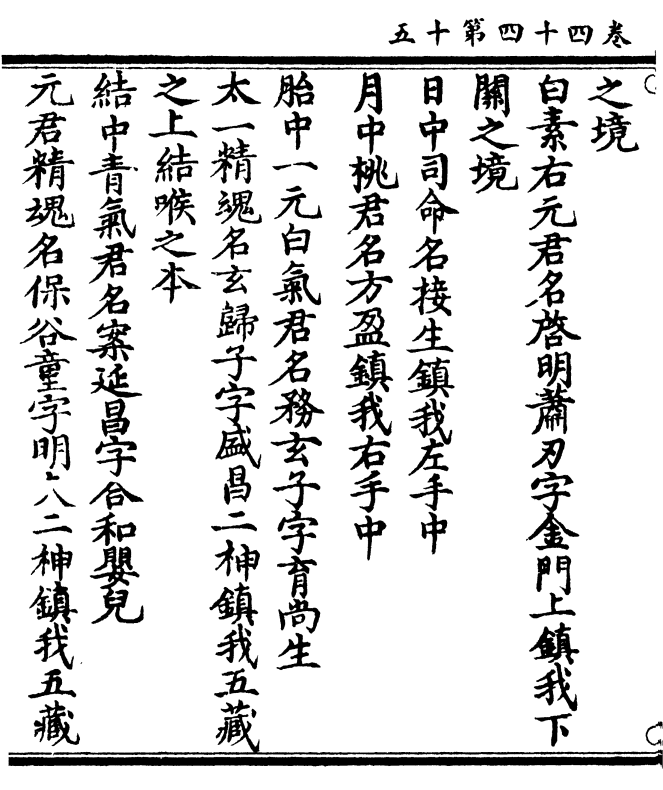 卷四十四第十五
之境
白素右元君名啓明蕭刃字金門上鎮我下
關之境
日中司命名接生鎮我左手中
月中桃君名方盈鎮我右手中
胎中一元白氣君名務玄子字育尚生
太一精魂名玄歸子字盛昌二神鎮我五藏
之上結喉之本
結中青氣君名案延昌字合和嬰兒
元君精魂名保谷童字明〻八二神鎮我五藏